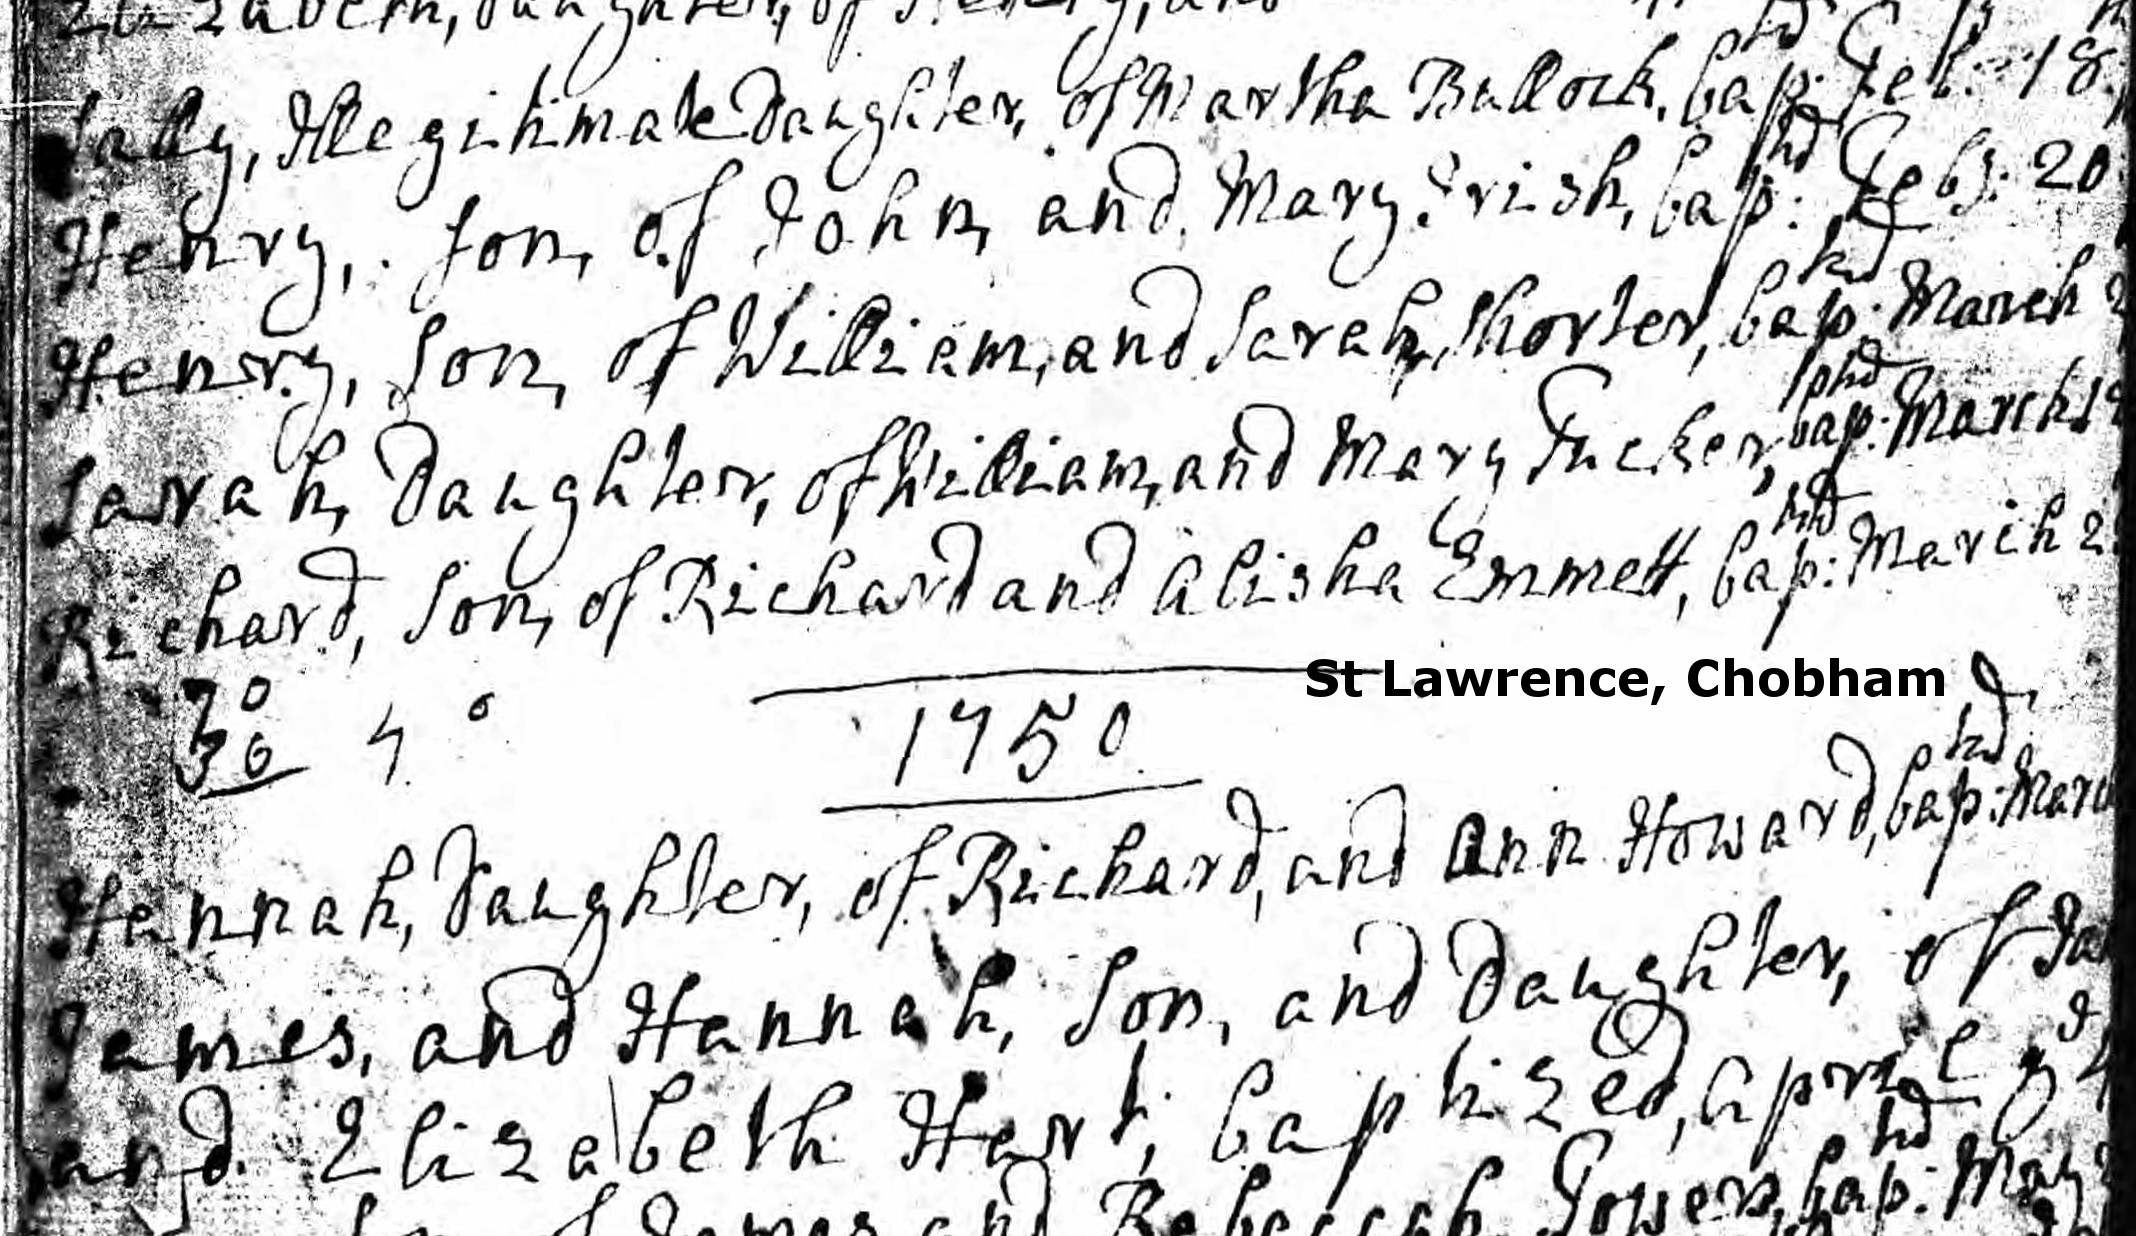 Elizabeth, Daughter, of Henry, and
Sally, Illegitimate Daughter, of Martha Bullock, bap:tizd Feb: 18
Henry, son, of John, and Mary Irish, bap:tizd Feb: 20
Henry, Son, of William, and Sarah, Shorter, bap:tizd March
Sarah, Daughter, of William, and Mary Tucker, bap:tizd March 1
Richard, Son, of Richard and Alisha Emmett, bap:tizd March 2
St Lawrence, Chobham
70
36 4 0 1750
Hannah, Daughter, of Richard, and Ann Howard, bap:tizd Mar
James, and Hannah, Son, and Daughter, of Ja
and Elizabeth Hart, baptized, April
of James and Rebeccah Gowers, bap:tizd May